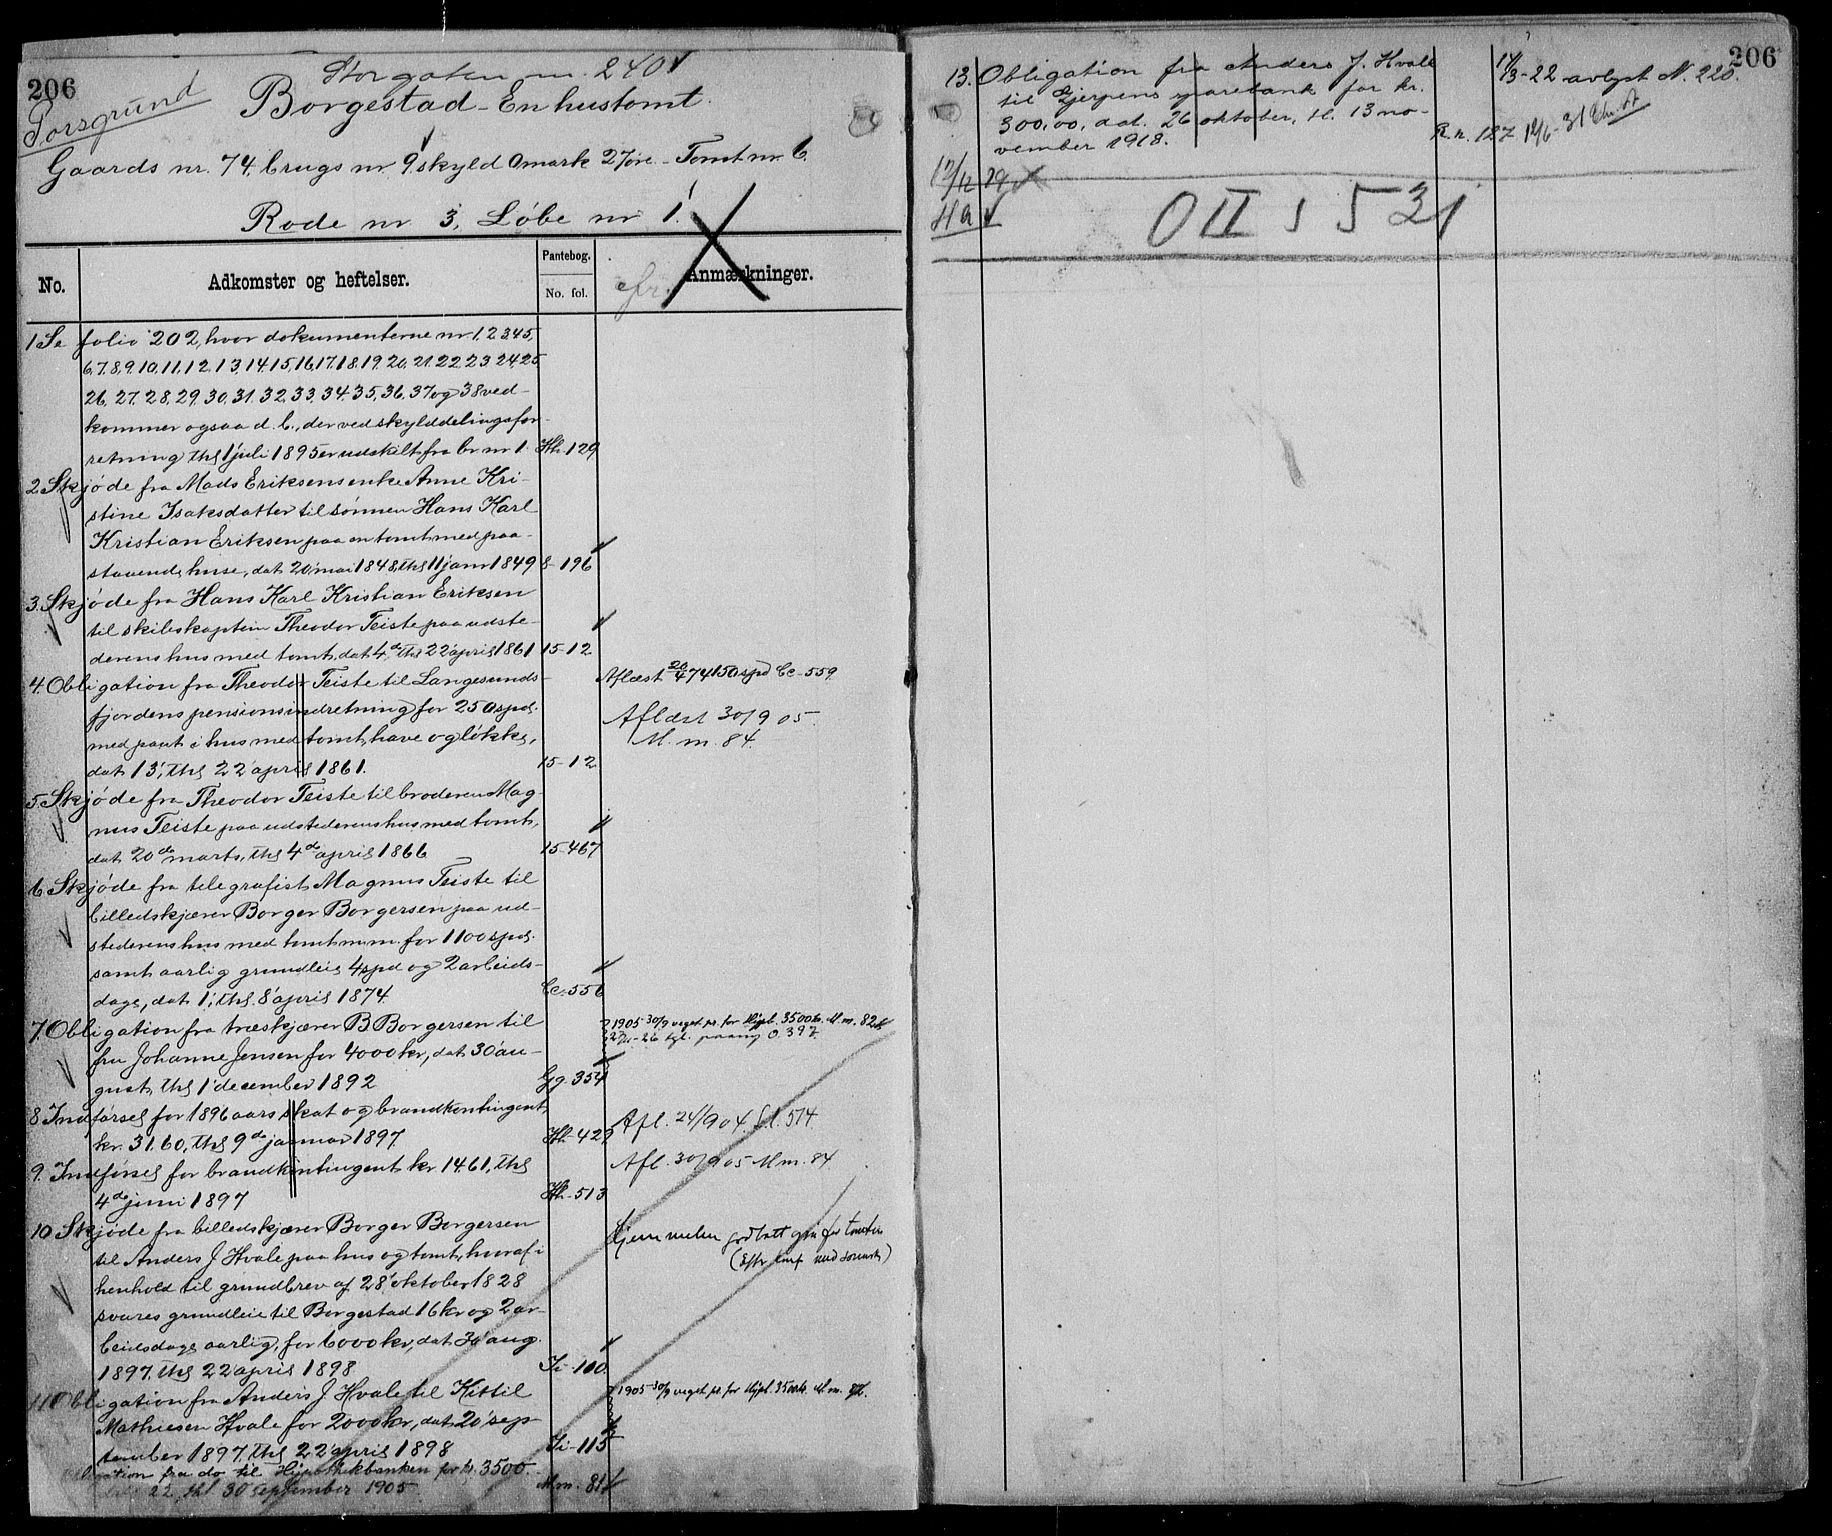 206
Storgaten nr. 240
Porsgrund
Borgestad - En hustomt.
Gaards nr. 74, brugs nr. 9 skyld 0 mark 27 øre - Tomt nr. 6.
Rode nr 3, Løbe nr 1.
No.
Adkomster og heftelser.
Pantebog.
No. fol.
Anmærkninger.
cfr.
1 Se folio 202, hvor dokumenterne nr. 1, 2, 3, 4, 5,
6, 7, 8, 9, 10, 11, 12, 13, 14, 15, 16, 17, 18, 19, 20, 21, 22, 23, 24, 25
26, 27, 28, 29, 30, 31, 32, 33, 34, 35, 36, 37 og 38 ved-
kommer ogsaa d. b., der ved skylddelingsfor-
retning thl 1 juli 1895 er udskilt fra br. nr 1. Hh. 129
2 Skjøde fra Mads Eriksens enke Anne Kri-
stine Isaksdatter til sønnen Hans Karl
Kristian Eriksen paa en tomt med paa-
staaende huse, dat 20 mai 1848, thl 11 janr 1849 8-196
3. Skjøde fra Hans Karl Kristian Eriksen
til skibskaptein Theodor Teiste paa udste-
derens hus med tomt, dat 4de, thl 22 april 1861 15-12
4. Obligation fra Theodor Teiste til Langesunds-
fjordens pensionsindretning for 250 spd.
med pant i hus med tomt, have og løkke,
dat 13, thl 22 april 1861. 15-12
Aflæst 20/4 74 150 spd Cc-559.
Aflæst 30/9 05.
M. m. 84.
5 Skjøde fra Theodor Teiste til broderen Mag-
nus Teiste paa udstederens hus med tomt,
dat 20de marts, thl 4de april 1866 15-467
6 Skjøde fra telegrafist Magnus Teiste til
billedskjærer Borger Borgersen paa ud-
stederens hus med tomt m.m. for 1100 spd.
samt aarlig grundleie 4 spd og 2 arbeids-
dage, dat 1, thl. 8 april 1874. Cc. 556
7. Obligation fra træskjærer B. Borgersen til
fru Johanne Jensen for 4000 kr, dat 30 au-
gust, thl 1 december 1892 Gg. 354
1905 30/9 veget pr. for Hypt. 3500 k. M. m. 82
8 Indførsel for 1896 aars skat og brandkontingent,
kr. 31.60, thl 9de januar 1897. Hh. 429
Afl. 24/9 04. Ll. 514.
9. Indførsel for brandkontingent kr. 14.61, thl
4de juni 1897 Hh-513
Afl. 30/9 05 M m. 84
10 Skjøde fra billedskjærer Borger Borgersen
til Anders J Hvale paa hus og tomt, hvoraf i
henhold til grundbrev af 28 oktober 1828
svares grundleie til Borgestad 16 kr og 2 ar-
beidsdage aarlig, for 6000 kr, dat 30 aug.
1897. thl 22 april 1898 Ii-100.
Hjemmelen godtatt for tomten
11 Obligation fra Anders J. Hvale til Kittil
Mathiesen Hvale for 2000 kr, dat 20 sep-
tember 1897, thl 22 april 1898 Ii-115
1905 30/9 veget pr. for Hypt. 3500 k. M. m. 82.
fra do til Hypothekbanken for kr. 3500.
22, thl 30 september 1905. M.m. 81
206
13. Obligation fra Anders J. Hvale
til Gjerpens sparebank for kr.
300.00, dat. 26 oktober, tl. 13 no-
vember 1918.
R. n. 127
11/3-22 avlyst N. 220.
12/6-31
12/12 29
Ha
O II s 531